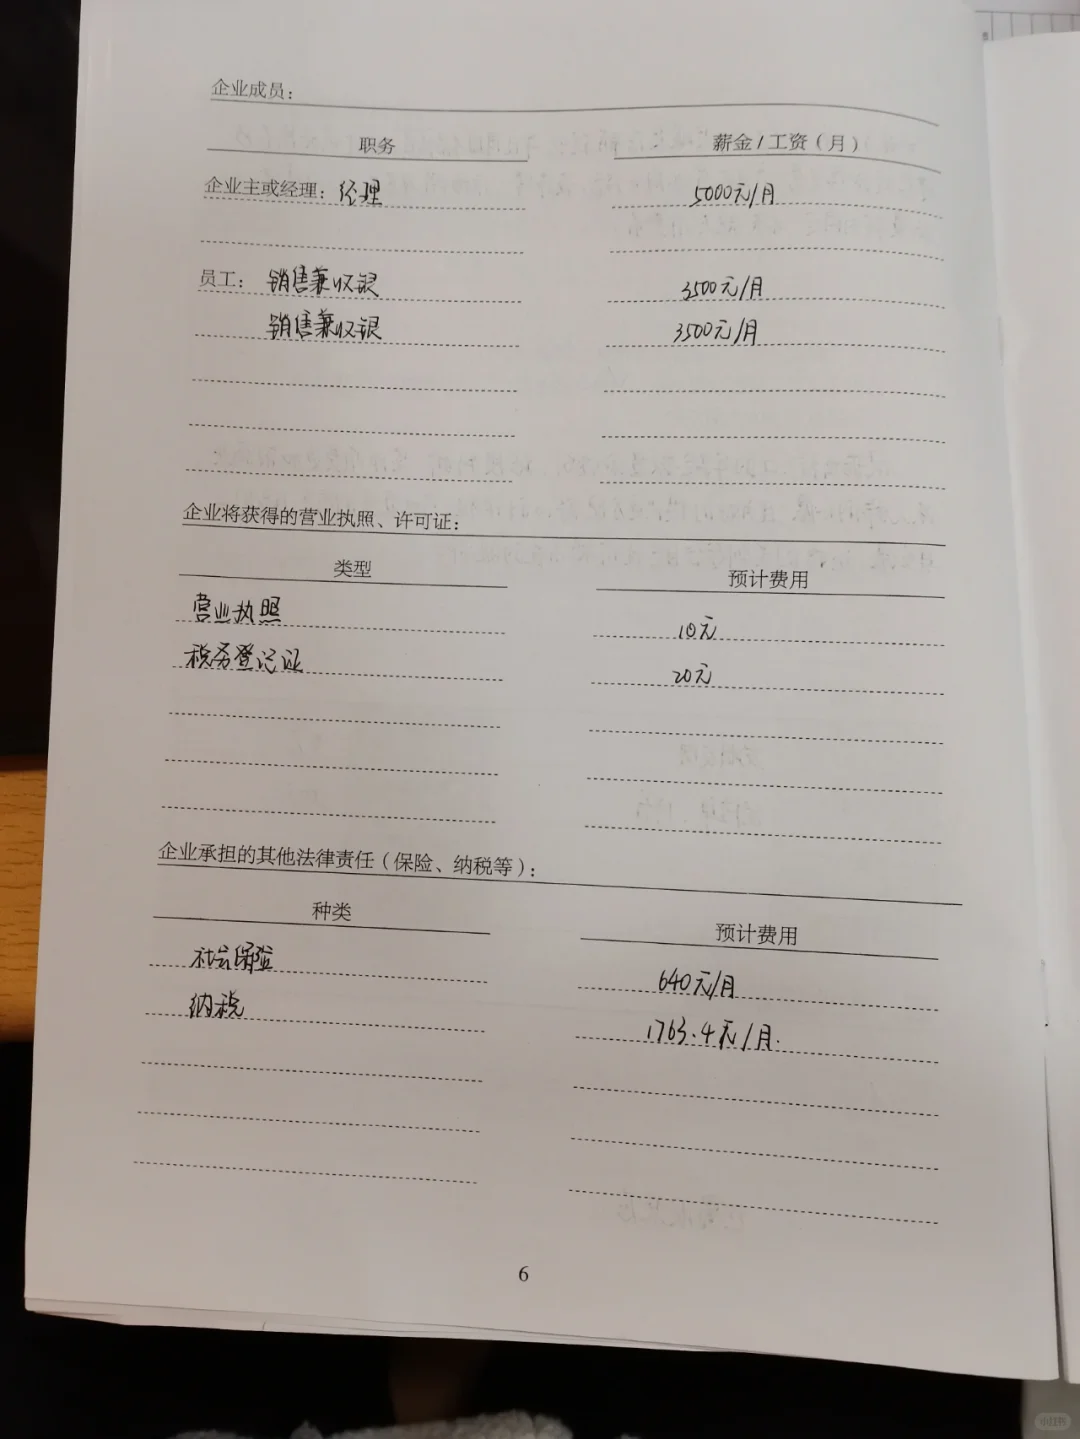 企业成员：
职务 薪金/工资（月）
企业主或经理：经理 5000元/月
员工： 销售兼收银 3500元/月
销售兼收银 3500元/月
企业将获得的营业执照、许可证：
类型 预计费用
营业执照 10元
税务登记证 20元
企业承担的其他法律责任（保险、纳税等）：
种类 预计费用
社会保险 640元/月
纳税 1763.4元/月.
6
小红书